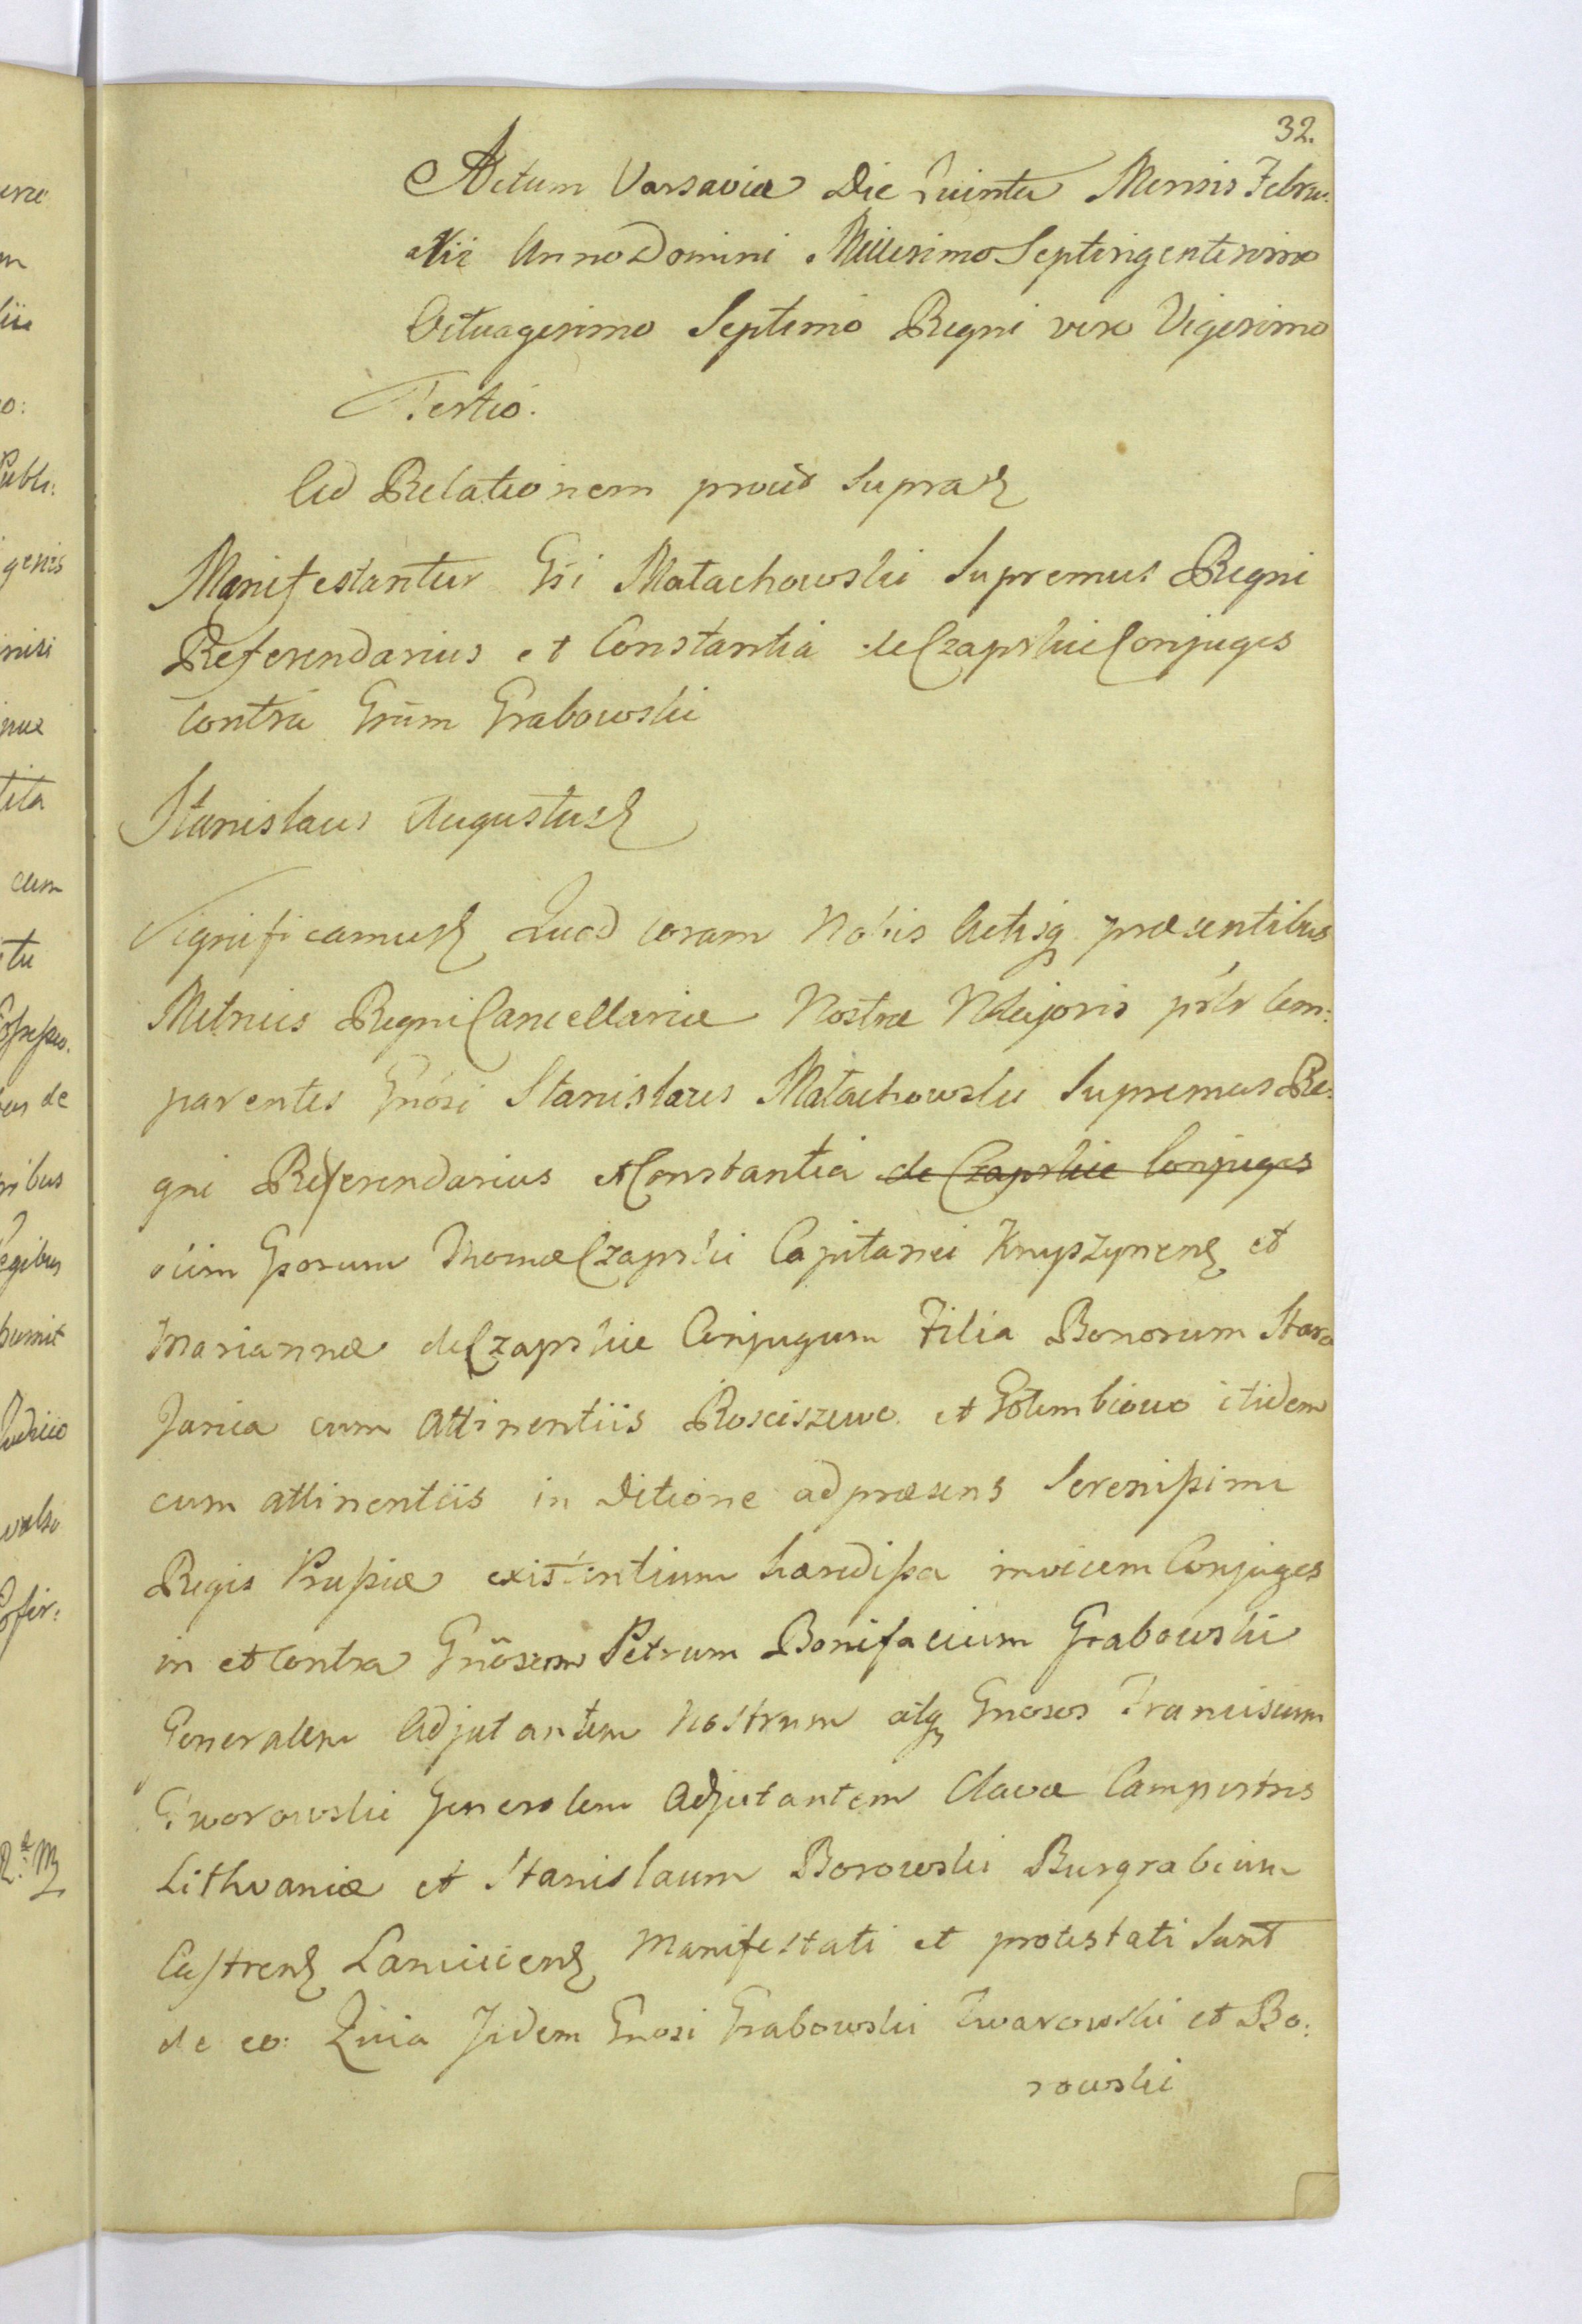 32.
Actum Varsaviæ Die Quinta Mensis Febru:
arii Anno Domini Millesimo Septingentesimo
Octuagesimo Septimo Regni vero Vigesimo
Tertio.
Ad Relationem prout supra
Manifestantur Gsi Małachowski Supremus Regni
Referendarius et Constantia de Czapskie Conjuges
contra Gsum Grabowski
Stanislaus Augustus
Significamus Quod coram Nobis Actisq præsentibus
Metrices Regni Cancellariæ Nostræ Majoris psłr com:
parentes Gnosi Stanislaus Małachowski Supremus Re:
gni Referendarius et Constantia de Czapskie Conjuges
olim Gsorum Thomæ Czapski Capitanei Knyszynen et
Mariannæ de Czapskie Conjugum Filia Bonorum Stara
Jania cum attinentiis Rosciszewo et Gołembiowo itidem
cum attinentiis in Ditione ad præsens Serenissimi
Regis Prussiæ existentium hærdissa invicem Conjuges
in et contra Gnosum Petrum Bonifacium Grabowski
Generalem Adjutantem Nostrum atq Gnosos Franciscum
Gworowski Generalem Adjutantem Clavæ Campestris
Lithvaniæ et Stanislaum Borowski Burgrabium
Castren Lanciicien Manifestati et protestati sunt
de eo: Quia Iidem Gnosi Grabowski Gwarowski et Bo:
rowski